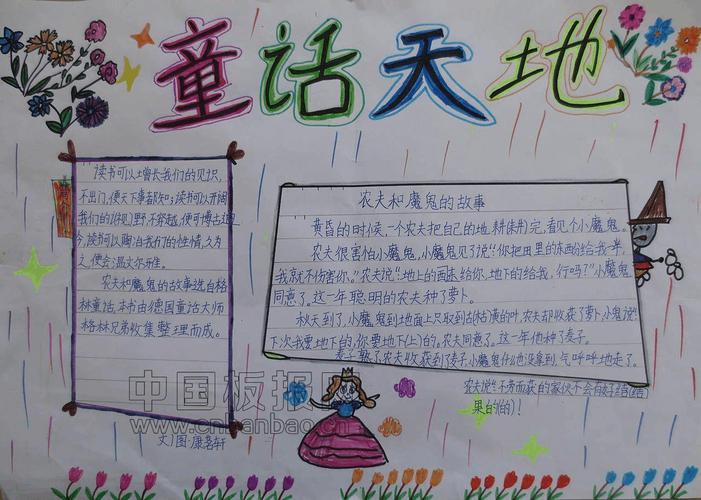 童话天地
读书可以增长我们的见识,
不出门,便天下事都知;读书可以开阔
我们的视野,不穷越,便可博古通
今,读书可以陶冶我们的性情,久而
久之,便会温文尔雅。
农夫和魔鬼的故事选自格
林童话,本书由德国童话大师
格林兄弟收集整理而成。
文/图:康茗轩
农夫和魔鬼的故事
黄昏的时候,一个农夫把自己的地耕完,看见个小魔鬼。
农夫很害怕小魔鬼,小魔鬼见了说:“你把田里的东西分给我一半,
我就不伤害你。”农夫说:“地上的给你,地下的给我,行吗?”小魔鬼
同意了。这一年聪明的农夫种了萝卜。
秋天到了,小魔鬼到地面上只取到枯黄的叶,农夫却收获了萝卜,小鬼说:“
下次我要地下的,你要地下(上)的,农夫同意了。这一年他种了麦子。
麦子熟了农夫收获到麦子,小魔鬼什么也没拿到,气呼呼地走了。
农夫说:“不劳而获的家伙不会有好结
果的!
中国板报
www.chinabanbao.cn